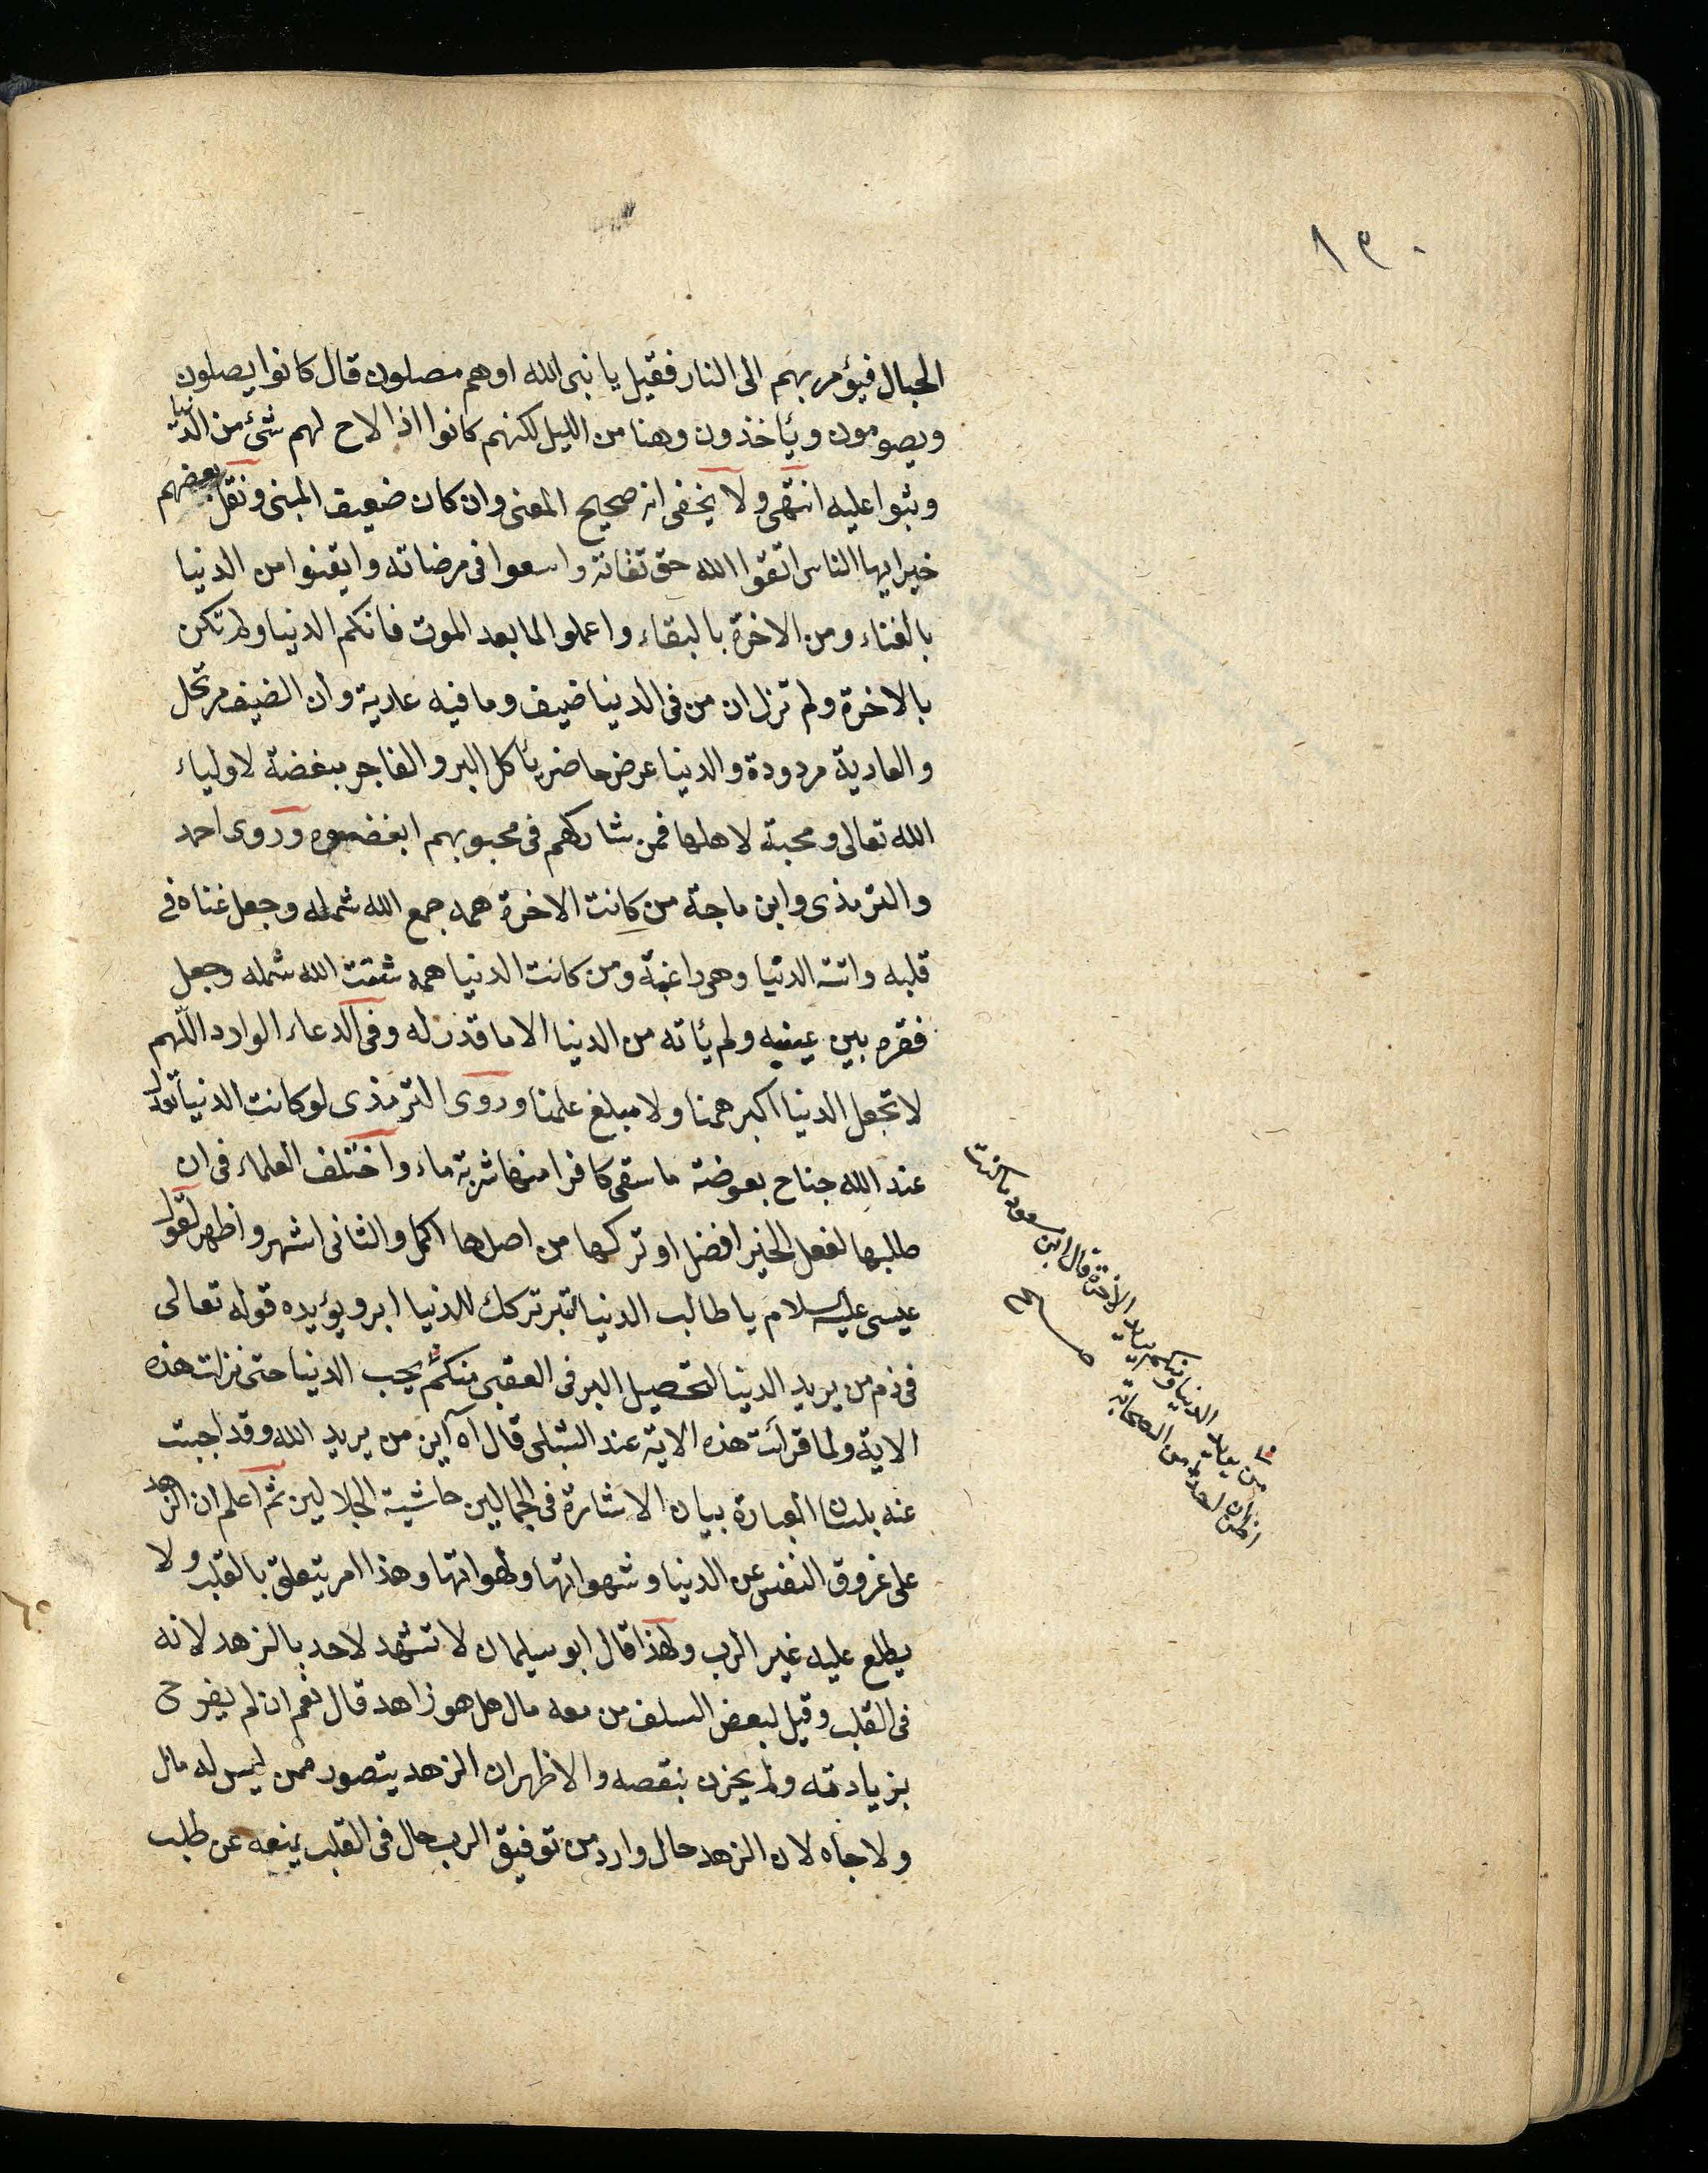 ١٣٠
الجبال فيؤمر بهم الى النار فقيل يا نبى الله اوهم مصلون قال كانوا يصلون
ويصومون ويأخذون وهنا من الليل لكنهم كانوا اذا لاح لهم شئ من الدنيا
وثبوا عليه انتهى ولا يخفى انه صحيح المعنى وان كان ضعيف المبنى ونقل بعضهم
خيرا يها الناس اتقوا الله حق تقاته واسعوا فى مرضاته وايقنوا من الدنيا
بالفناء ومن الاخرة بالبقاء واعملوا لما بعد الموت فانكم الدنيا ولم تكن
بالاخرة ولم تزل ان من فى الدنيا ضيف وما فيه عارية وان الضيف مرتحل
والعارية مردودة والدنيا عرض حاضر يأكل البر والفاجر مبغضة لاولياء
الله تعالى ومحبة لاهلها فمن شاركهم فى محبوبهم ابغضوه وروى احمد
والترمذى وابن ماجة من كانت الاخرة همه جمع الله شمله وجعل غناه فى
قلبه واتته الدنيا وهى راغبة ومن كانت الدنيا همه شتت الله شمله وجعل
فقره بين عينيه ولم يأته من الدنيا الا ما قدر له وفى الدعاء الوارد اللهم
لا تجعل الدنيا اكبر همنا ولا مبلغ علمنا وروى الترمذى لو كانت الدنيا تعدل
عند الله جناح بعوضة ما سقى كافرا منها شربة ماء واختلف العلماء فى ان
طلبها لفعل الخير افضل او تركها من اصلها اكمل والثانى اشهر واظهر لقول
عيسى عليه السلام يا طالب الدنيا لتبر تركك للدنيا ابر ويؤيده قوله تعالى
فى ذم من يريد الدنيا لتحصيل البر فى العقبى منكم يحب الدنيا حتى نزلت هذه
الاية ولما قرأت هذه الاية عند الشبلى قال اه اين من يريد الله وقد اجبت
عنه بلسان العبارة بيان الاشارة فى الجمالين حاشية الجلالين ثم اعلم ان الزهد
على عزوف النفس عن الدنيا وشهواتها ولهواتها وهذا امر يتعلق بالقلب ولا
يطلع عليه غير الرب ولهذا قال ابو سيلمان لا تشهد لاحد بالزهد لانه
فى القلب وقيل لبعض السلف من معه مال هل هو زاهد قال نعم ان لم يفرح
بزيادته ولم يحزن بنقصه والاظهر ان الزهد يتصور ممن ليس له مال
ولا جاه لان الزهد حال وارد من توفيق الرب حال فى القلب يمنعه عن طلب
من يريد الدنيا ومنكم من يريد الاخرة قال ابن مسعود ما كنت
اظن ان احدا من الصحابة
صح